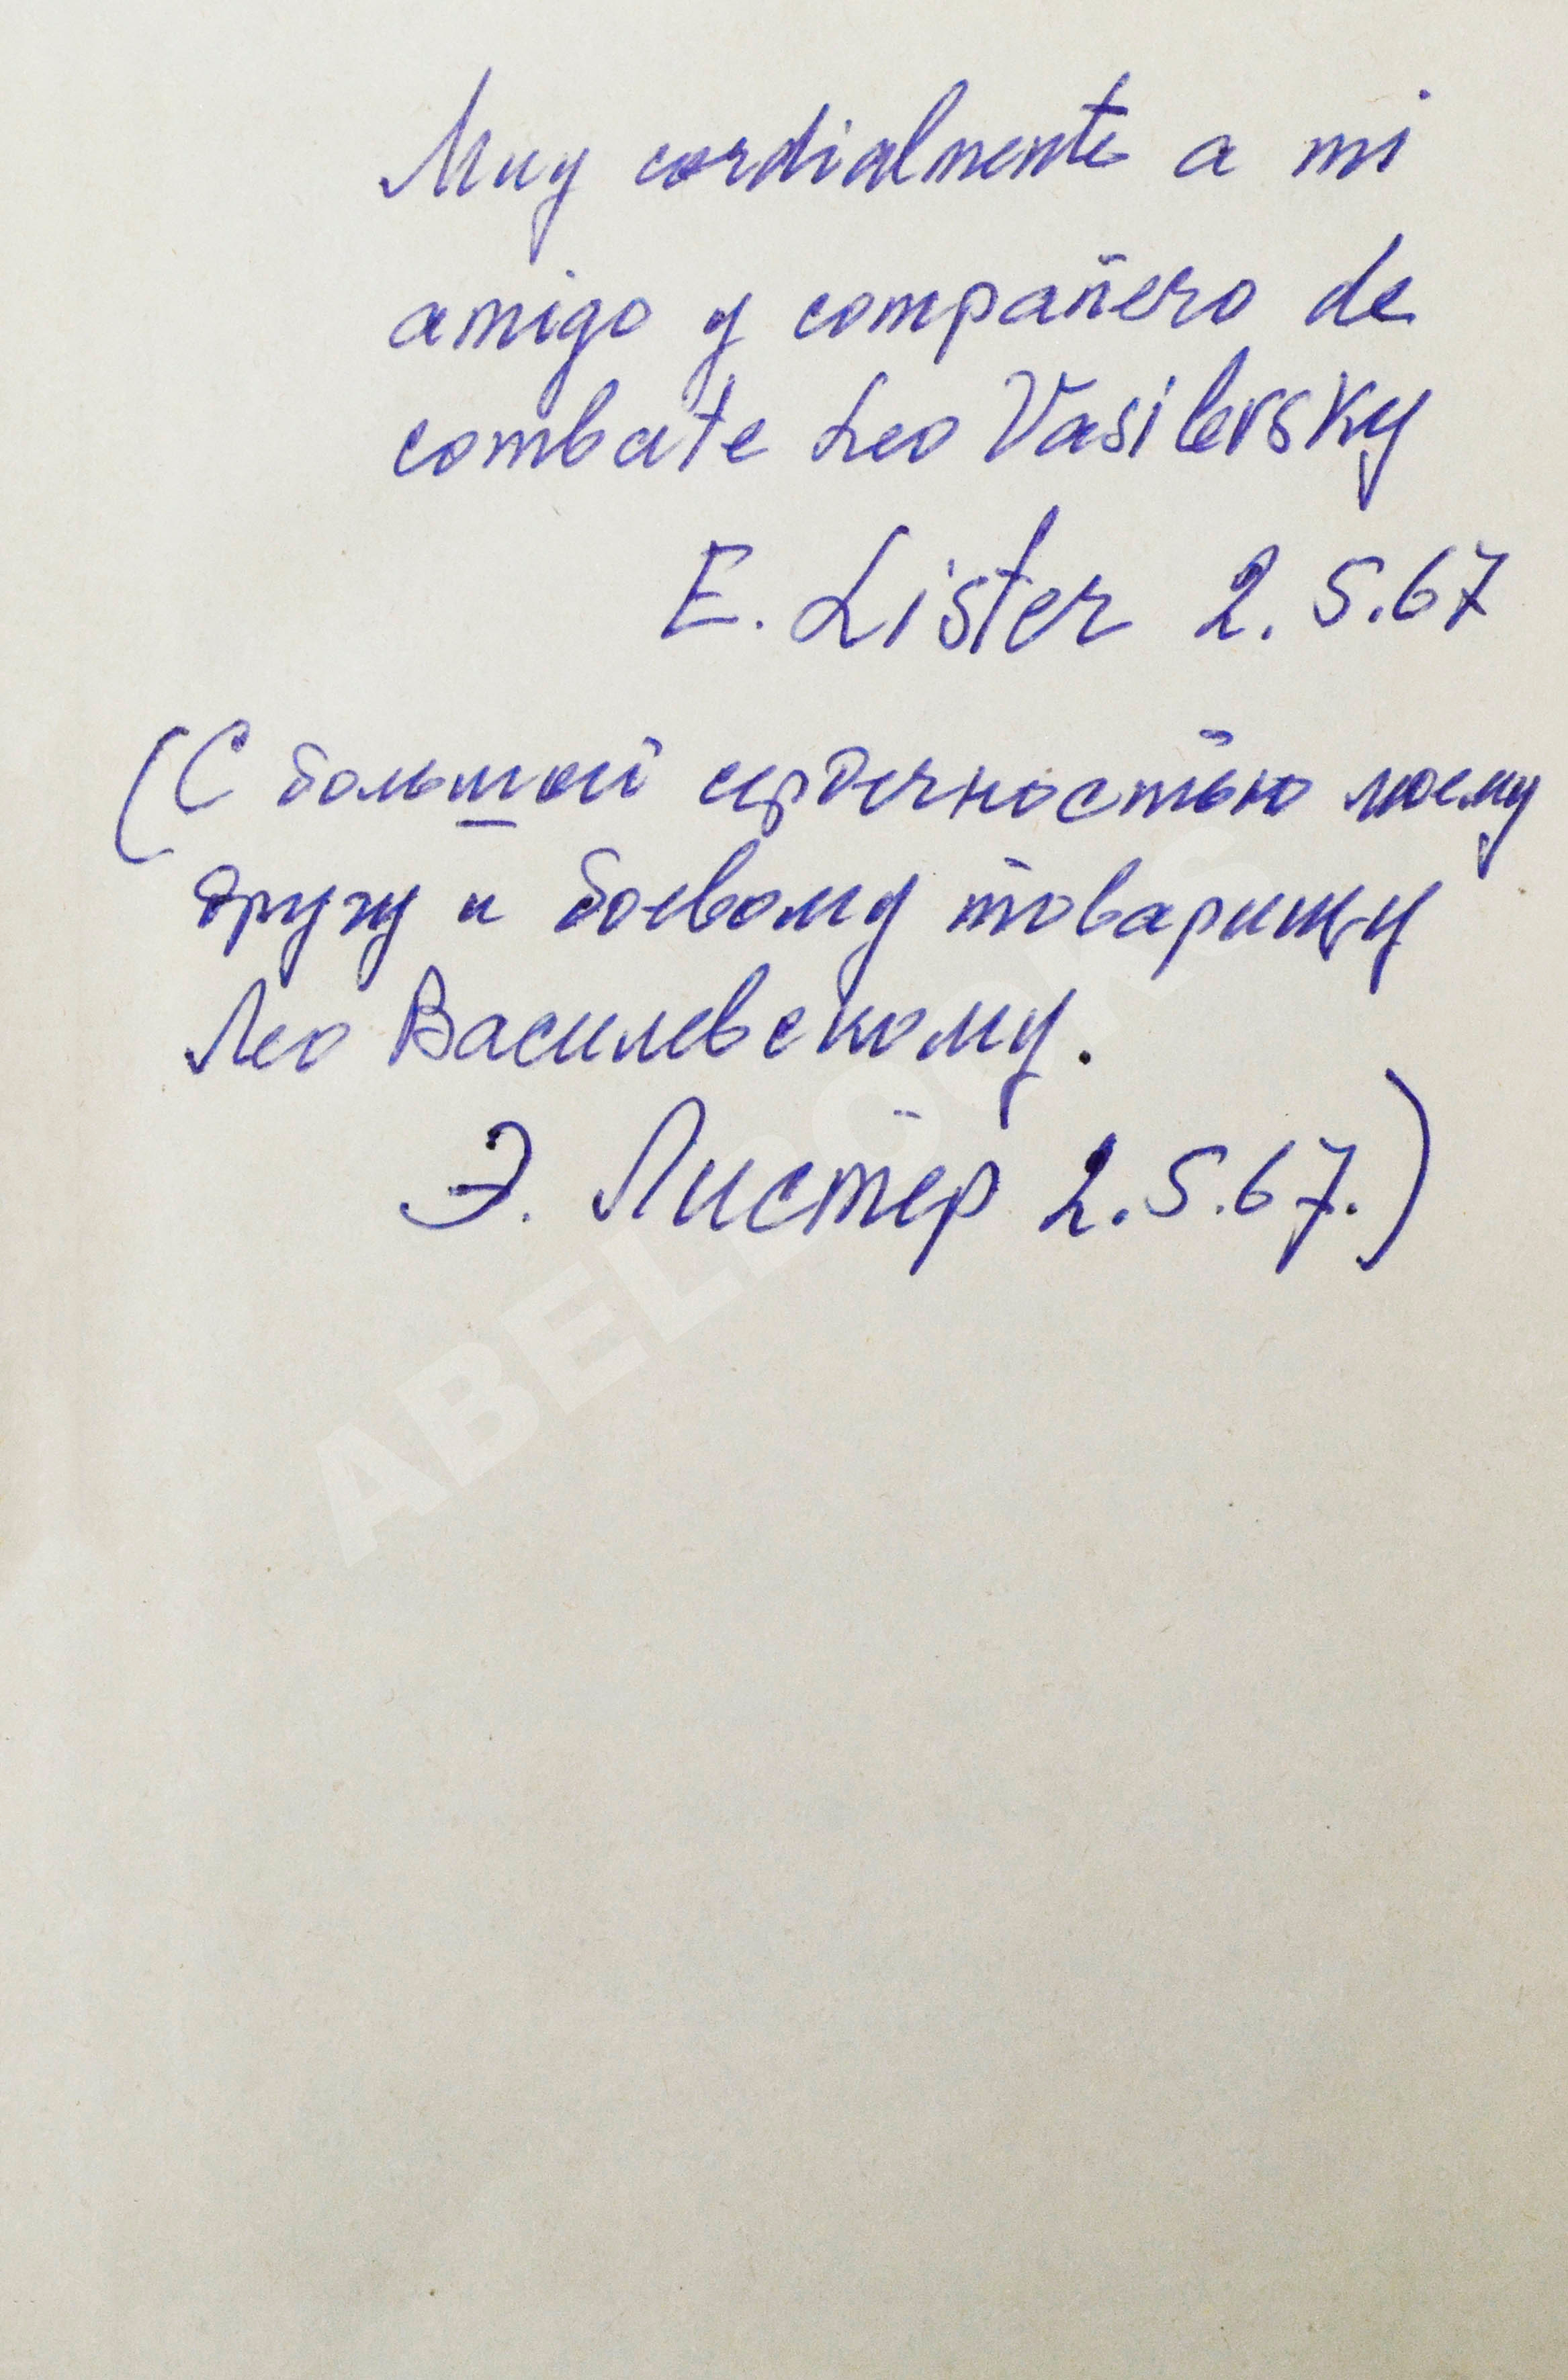 Muy cordialmente a mi
amigo y compañero de
combate Leo Vasilevsky
E. Lister 2.5.67
(С большой сердечностью моему
другу и боевому товарищу
Лео Василевскому.
Э. Листер 2.5.67.)
ABELBOOKS